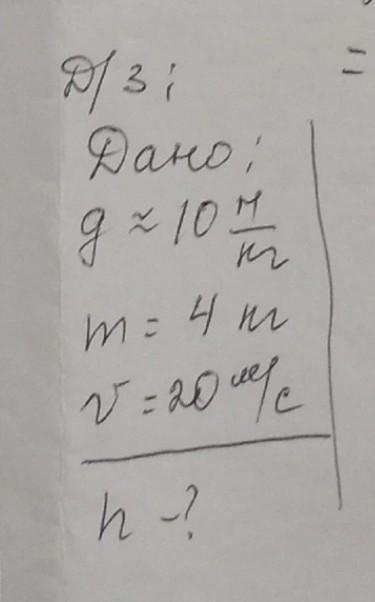 Д/З;
Дано;
g ≈ 10 Н/кг
m = 4 кг
v = 20 м/с
h - ?
=